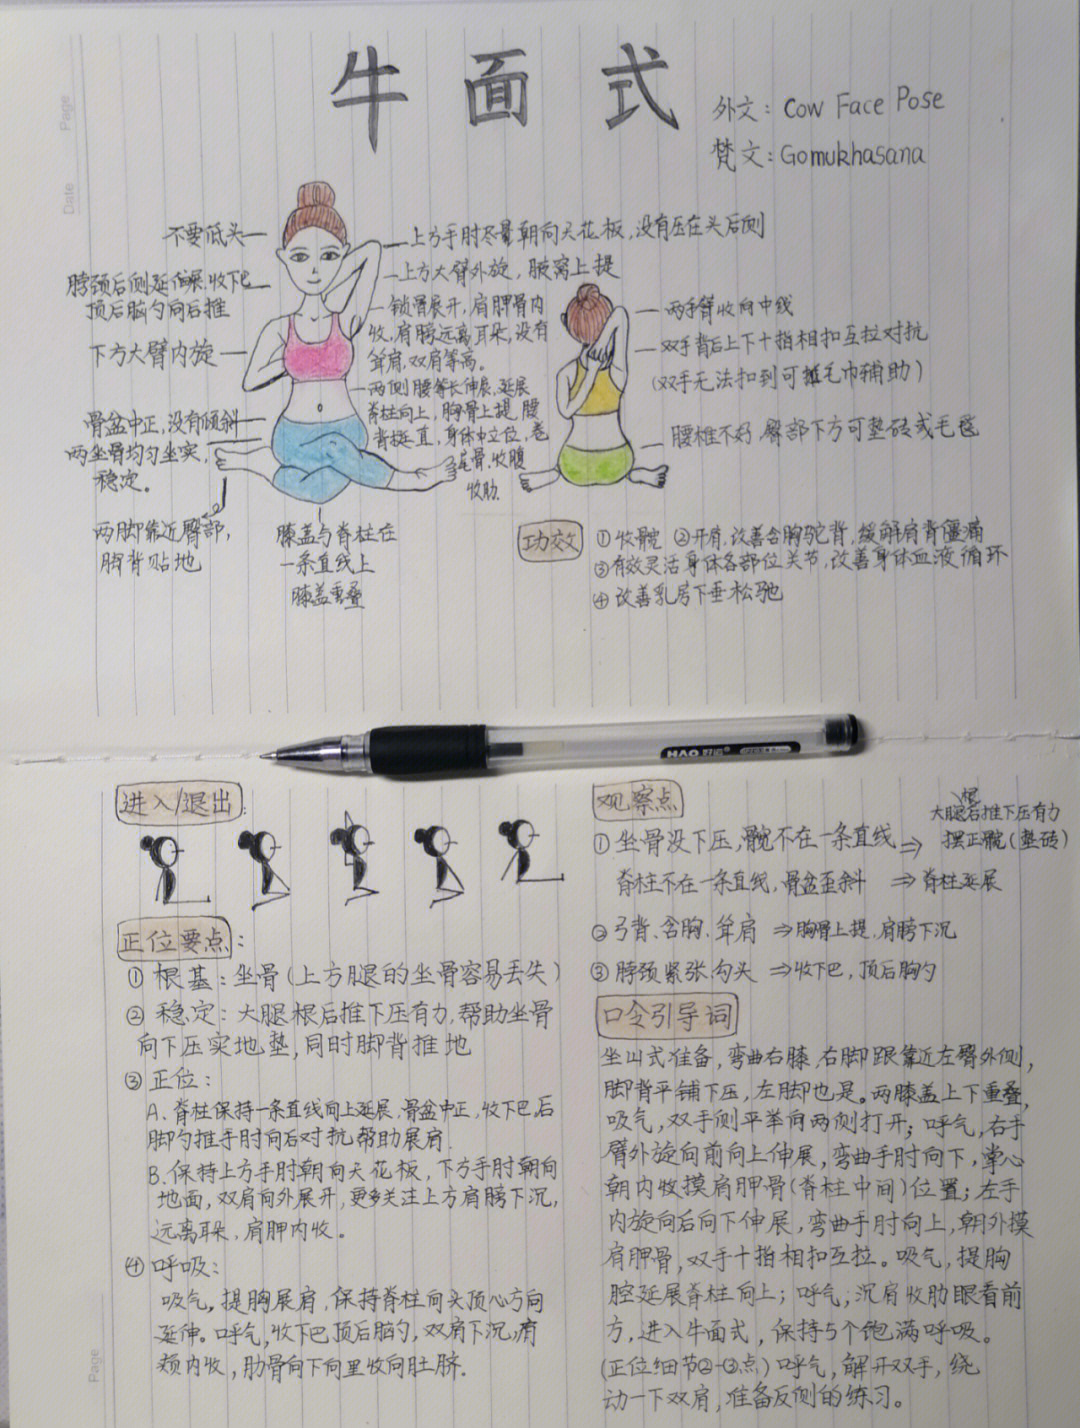 牛面式
外文：Cow Face Pose
梵文：Gomukhasana
Page
Date
不要低头
脖颈后侧延伸展,收下巴
顶后脑勺向后推
下方大臂内旋
骨盆中正,没有倾斜
两坐骨均匀坐实,
稳定。
两脚靠近臀部,
脚背贴地
膝盖与脊柱在
一条直线上
膝盖重叠
上方手肘尽量朝向天花板,没有压在头后侧
上方大臂外旋,腋窝上提
锁骨展开,肩胛骨内
收,肩膀远离耳朵,没有
耸肩,双肩等高。
两侧腰等长伸展,延展
脊柱向上,胸骨上提,腰
背挺直,身体中立位,卷
尾骨,收腹
收肋.
两手臂收向中线
双手背后上下十指相扣互拉对抗
(双手无法扣到可 毛巾辅助)
腰椎不好,臀部下方可垫砖或毛毯
功效
①收髋 ②开肩,改善含胸驼背,缓解肩背僵痛
③有效灵活身体各部位关节,改善身体血液循环
④改善乳房下垂松驰
HAO 好运
进入/退出:
正位要点:
①根基:坐骨(上方腿的坐骨容易丢失)
②稳定:大腿根后推下压有力,帮助坐骨
向下压实地垫,同时脚背推地
③正位:
A.脊柱保持一条直线向上延展,骨盆中正,收下巴,后
脑勺推手肘向后对抗,帮助展肩.
B.保持上方手肘朝向天花板,下方手肘朝向
地面,双肩向外展开,更多关注上方肩膀下沉,
远离耳朵,肩胛内收。
④呼吸:
吸气,提胸展肩,保持脊柱向头顶心方向
延伸。呼气,收下巴顶后脑勺,双肩下沉,肩
颊内收,肋骨向下向里收向肚脐.
Page
观察点
①坐骨没下压,髋不在一条直线⇒
大腿根后推下压有力
摆正髋(垫砖)
脊柱不在一条直线,骨盆歪斜 ⇒脊柱延展
②弓背、含胸、耸肩 ⇒胸骨上提,肩膀下沉
③脖颈紧张,勾头 ⇒收下巴,顶后胸勺
口令引导词
坐山式准备,弯曲右膝,右脚跟靠近左臀外侧,
脚背平铺下压,左脚也是。两膝盖上下重叠,
吸气,双手侧平举向两侧打开;呼气,右手
臂外旋向前向上伸展,弯曲手肘向下,掌心
朝内收摸肩胛骨(脊柱中间)位置;左手
内旋向后向下伸展,弯曲手肘向上,朝外摸
肩胛骨,双手十指相扣互拉。吸气,提胸
腔延展脊柱向上;呼气,沉肩收肋眼看前
方,进入牛面式,保持5个饱满呼吸。
(正位细节②-③点)呼气,解开双手,绕
动一下双肩,准备反侧的练习。